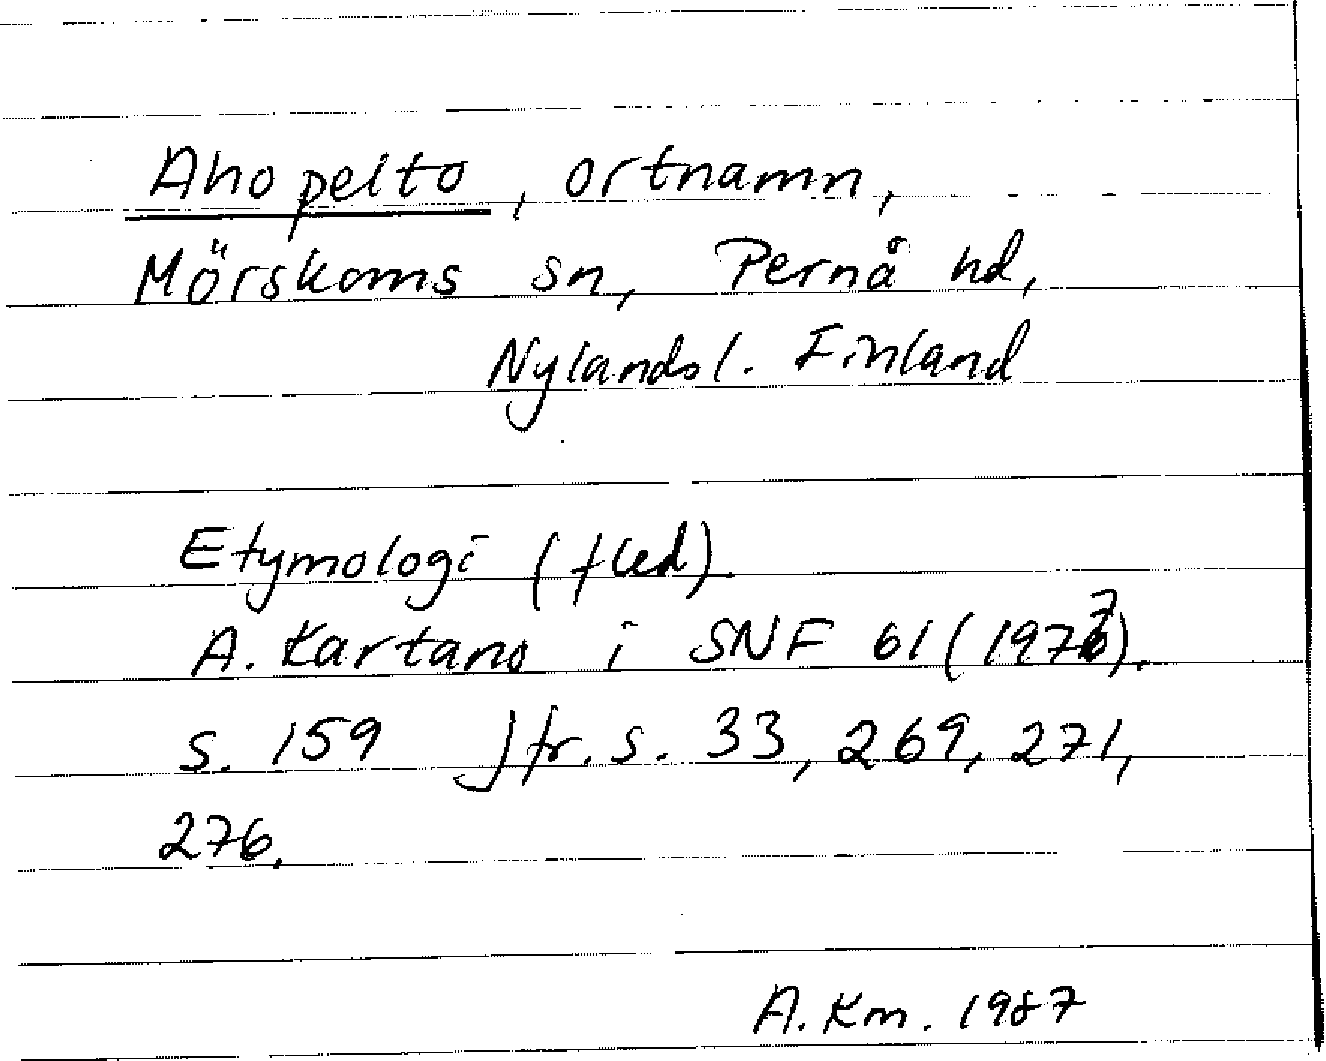 Ahopelto, ortnamn,
Mörskoms sn, Pernå hd,
Nylands l. Finland
Etymologi (fled)
A. Kartano i SNF 61 (1977).
s. 159 Jfr. s. 33, 269, 271,
276.
A. Km. 1987